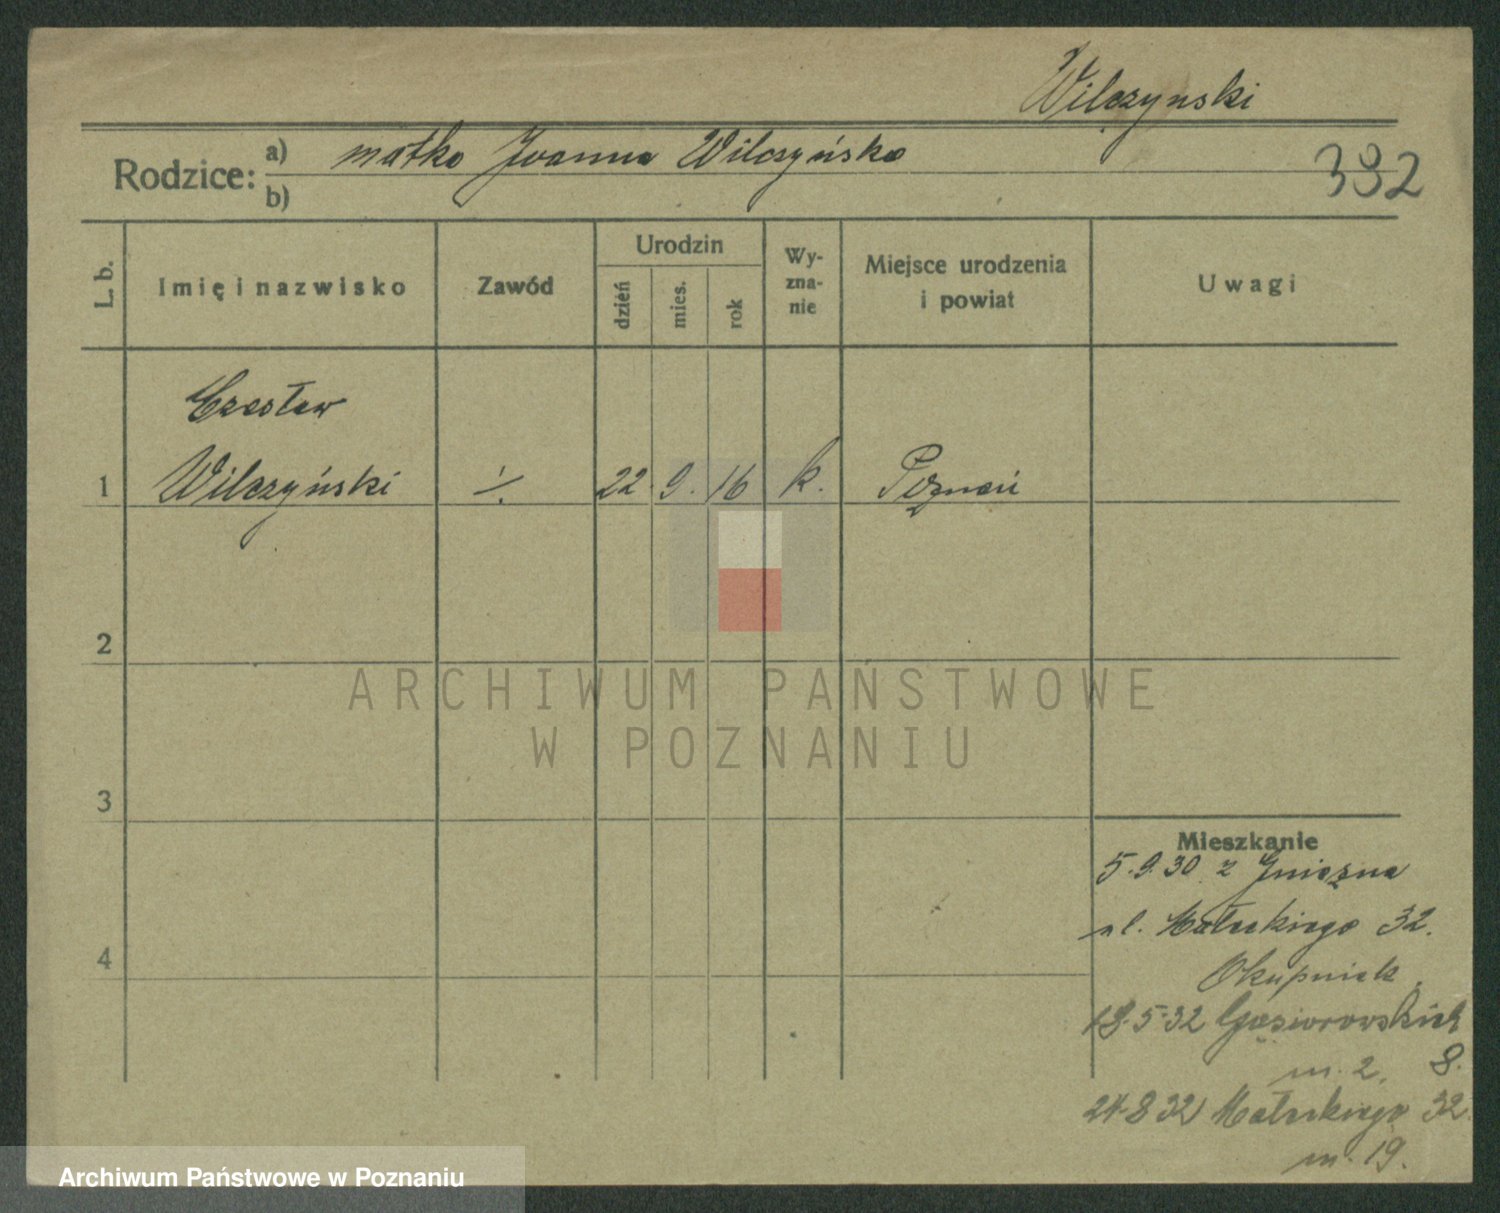 Wilczynski
Rodzice: a) matka Joanna Wilczyńska
b)
392
L. b.
Imię i nazwisko
Zawód
Urodzin
dzień
mies.
rok
Wy-
zna-
nie
Miejsce urodzenia
i powiat
Uwagi
Czesław
1 Wilczyński ·/. 22. 9. 16 k. Poznań
2
ARCHIWUM PAŃSTWOWE
W POZNANIU
3
Mieszkanie
5.9.30 z Gniezna
4
ul. Małeckiego 32.
Okupniak
18.5.32 Gąsiorowskich
m. 2. 8.
24.8 32 Małeckiego 32
m. 19.
Archiwum Państwowe w Poznaniu